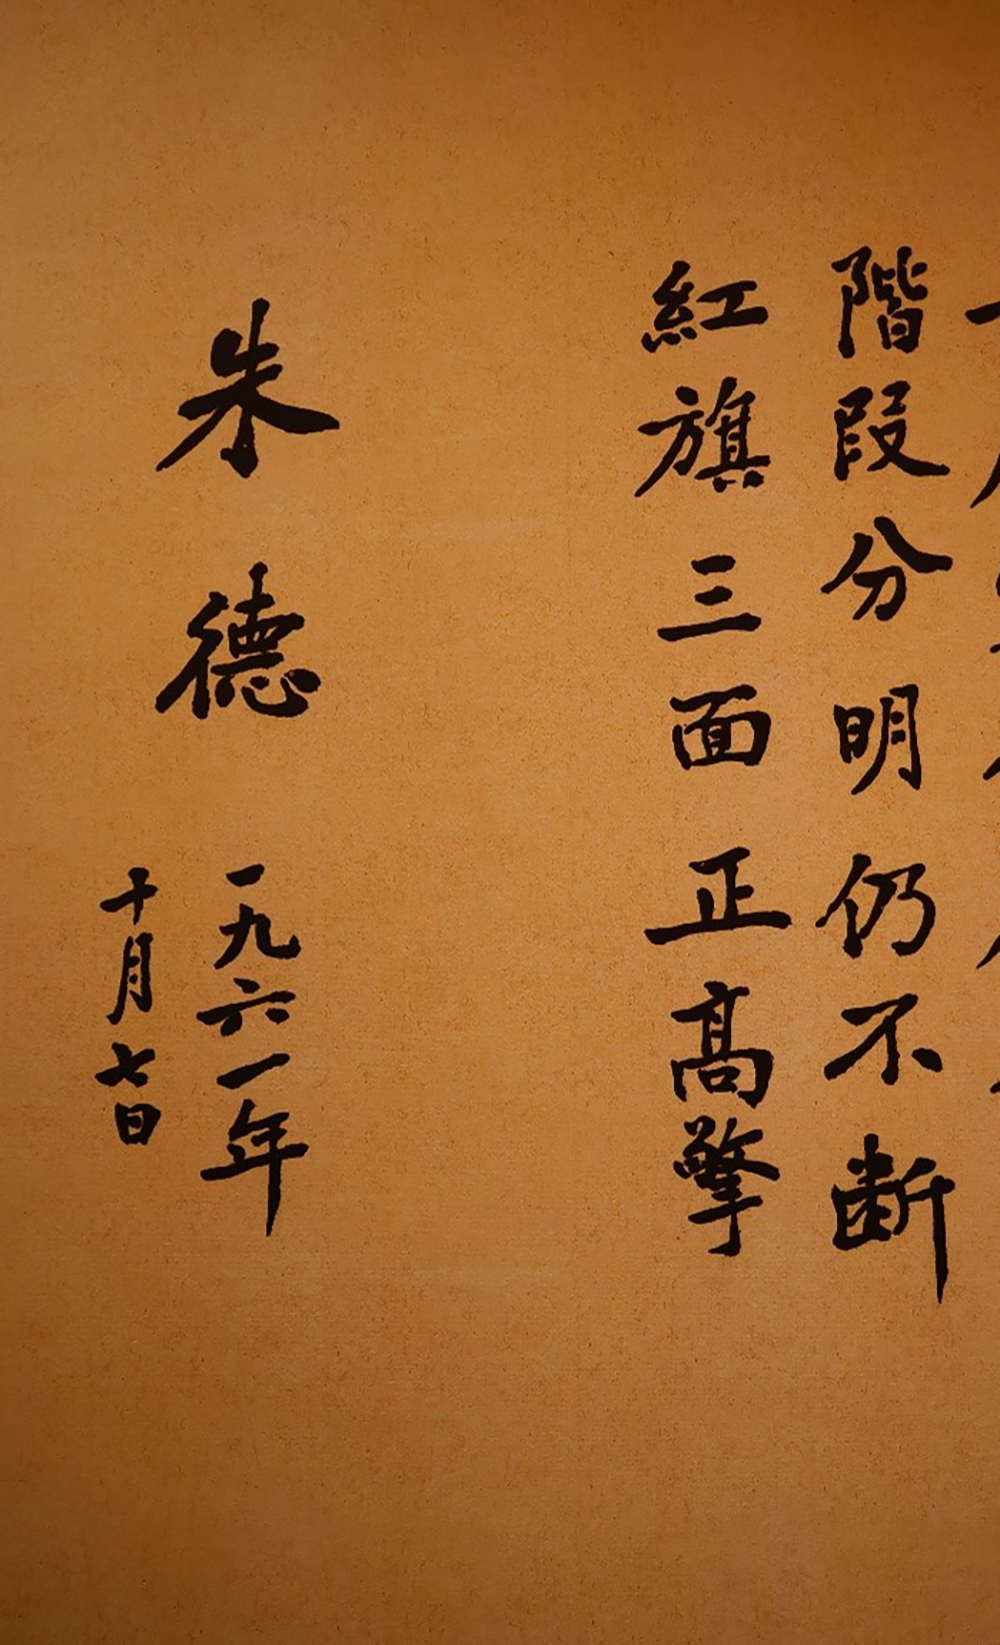 階段分明仍不断
紅旗三面正高擎
朱德
一九六一年
十月七日